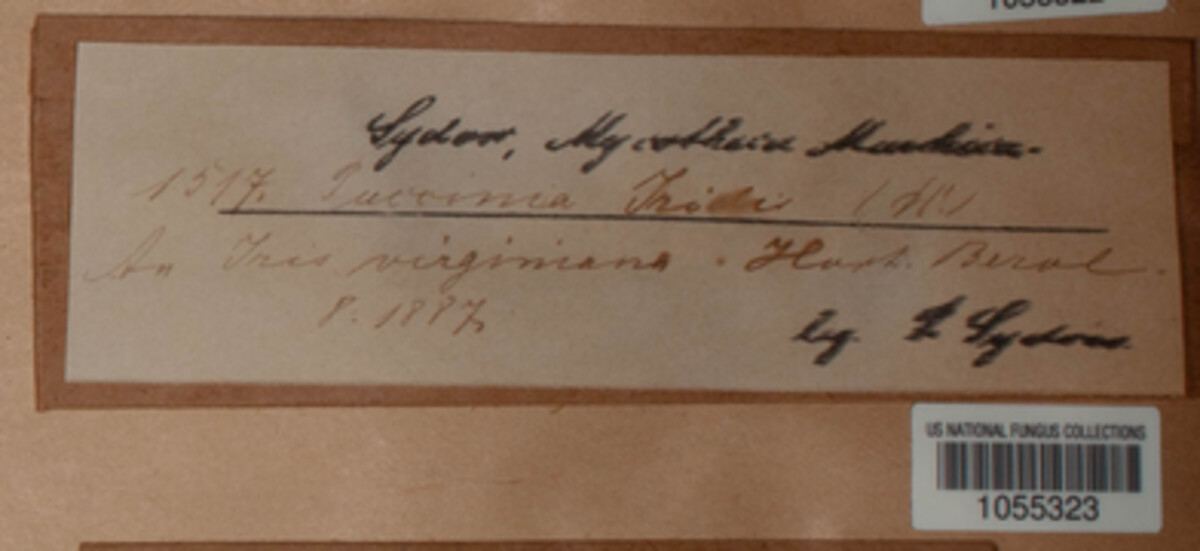 Sydow, Mycotheca Marchica.
1517. Puccinia Iridis
An Iris virginiana. Hort. Berol.
8. 1887.
leg. P. Sydow.
US NATIONAL FUNGUS COLLECTIONS
1055323